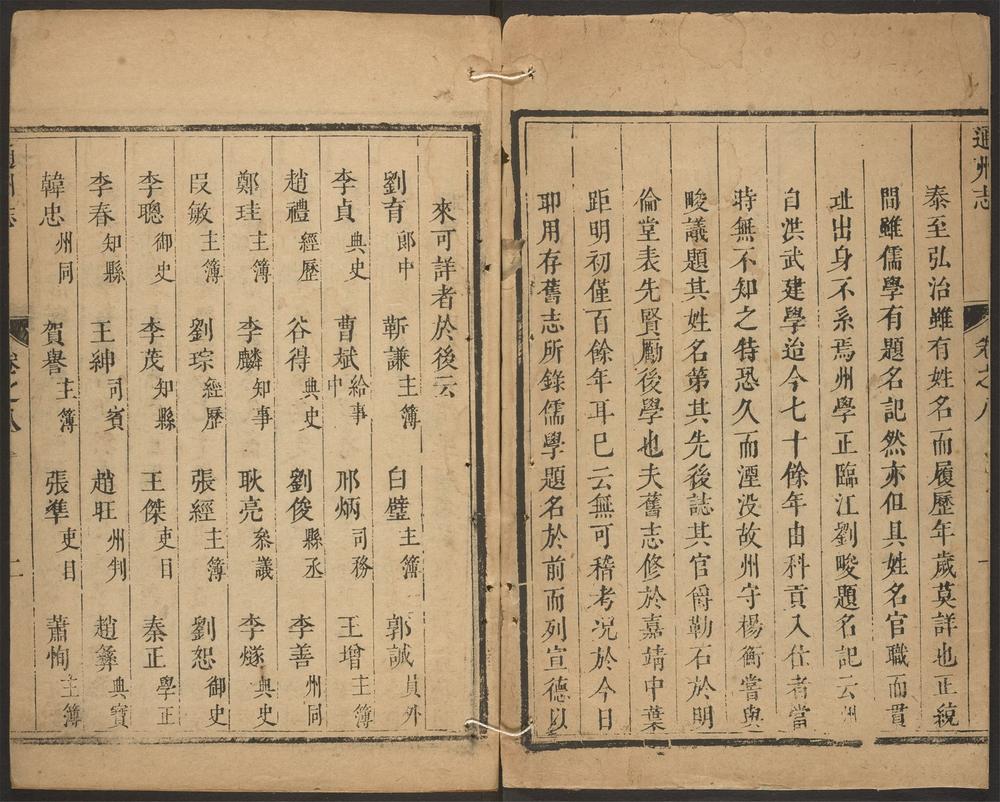 通州志 卷之八
泰至弘治雖有姓名而履歷年歲莫詳也正統
間雖儒學有題名記然亦但具姓名官職而貫
址出身不系焉州學正臨江劉畯題名記云州
自洪武建學迨今七十餘年由科貢入仕者當
時無不知之特恐久而湮没故州守楊衡嘗與
畯議題其姓名第其先後誌其官爵勒石於明
倫堂表先賢勵後學也夫舊志修於嘉靖中葉
距明初僅百餘年耳已云無可稽考况於今日
耶用存舊志所錄儒學題名於前而列宣德以
來可詳者於後云
劉育 郎中 靳謙 主簿 白璧 主簿 郭誠 員外
李貞 典史 曹斌 給事中 邢炳 司務 王增 主簿
趙禮 經歷 谷得 典史 劉俊 縣丞 李善 州同
鄭珪 主簿 李麟 知事 耿亮 叅議 李燧 典史
段敏 主簿 劉琮 經歷 張經 主簿 劉恕 御史
李聰 御史 李茂 知縣 王傑 吏目 秦正 學正
李春 知縣 王紳 司賓 趙旺 州判 趙彝 典寶
韓忠 州同 賀譽 主簿 張準 吏目 蕭恂 主簿
卷之八 二